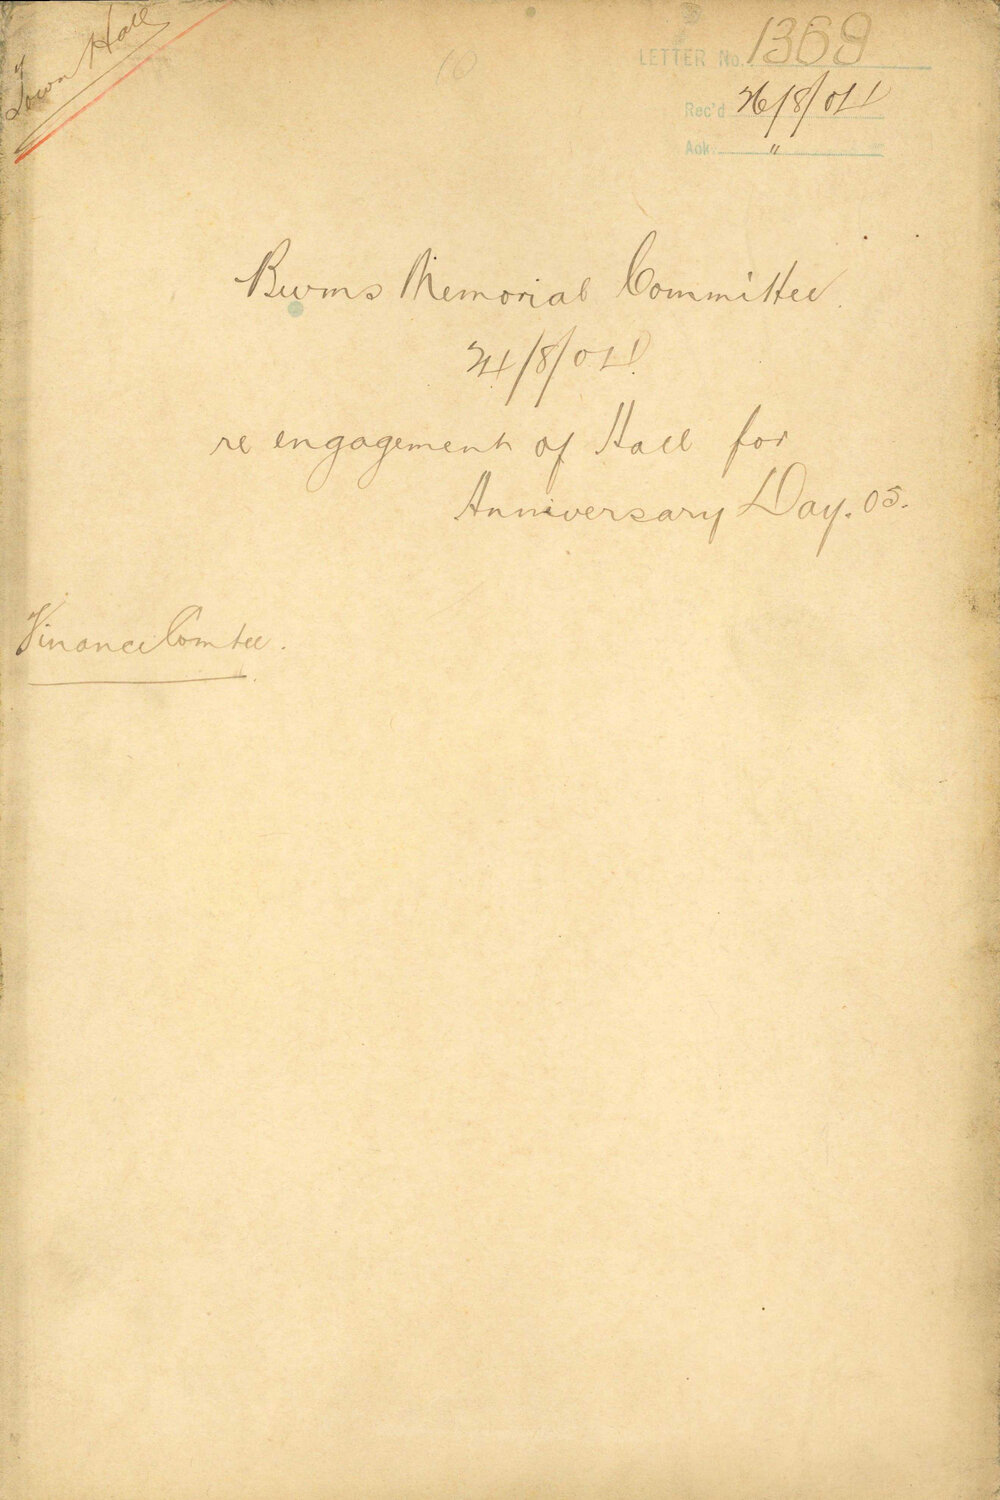 Town Hall
10
LETTER No. 1369
Rec'd 26/8/04
Ack "
Burns Memorial Committee.
24/8/04.
re engagement of Hall for
Anniversary Day. 05.
Finance Comtee.